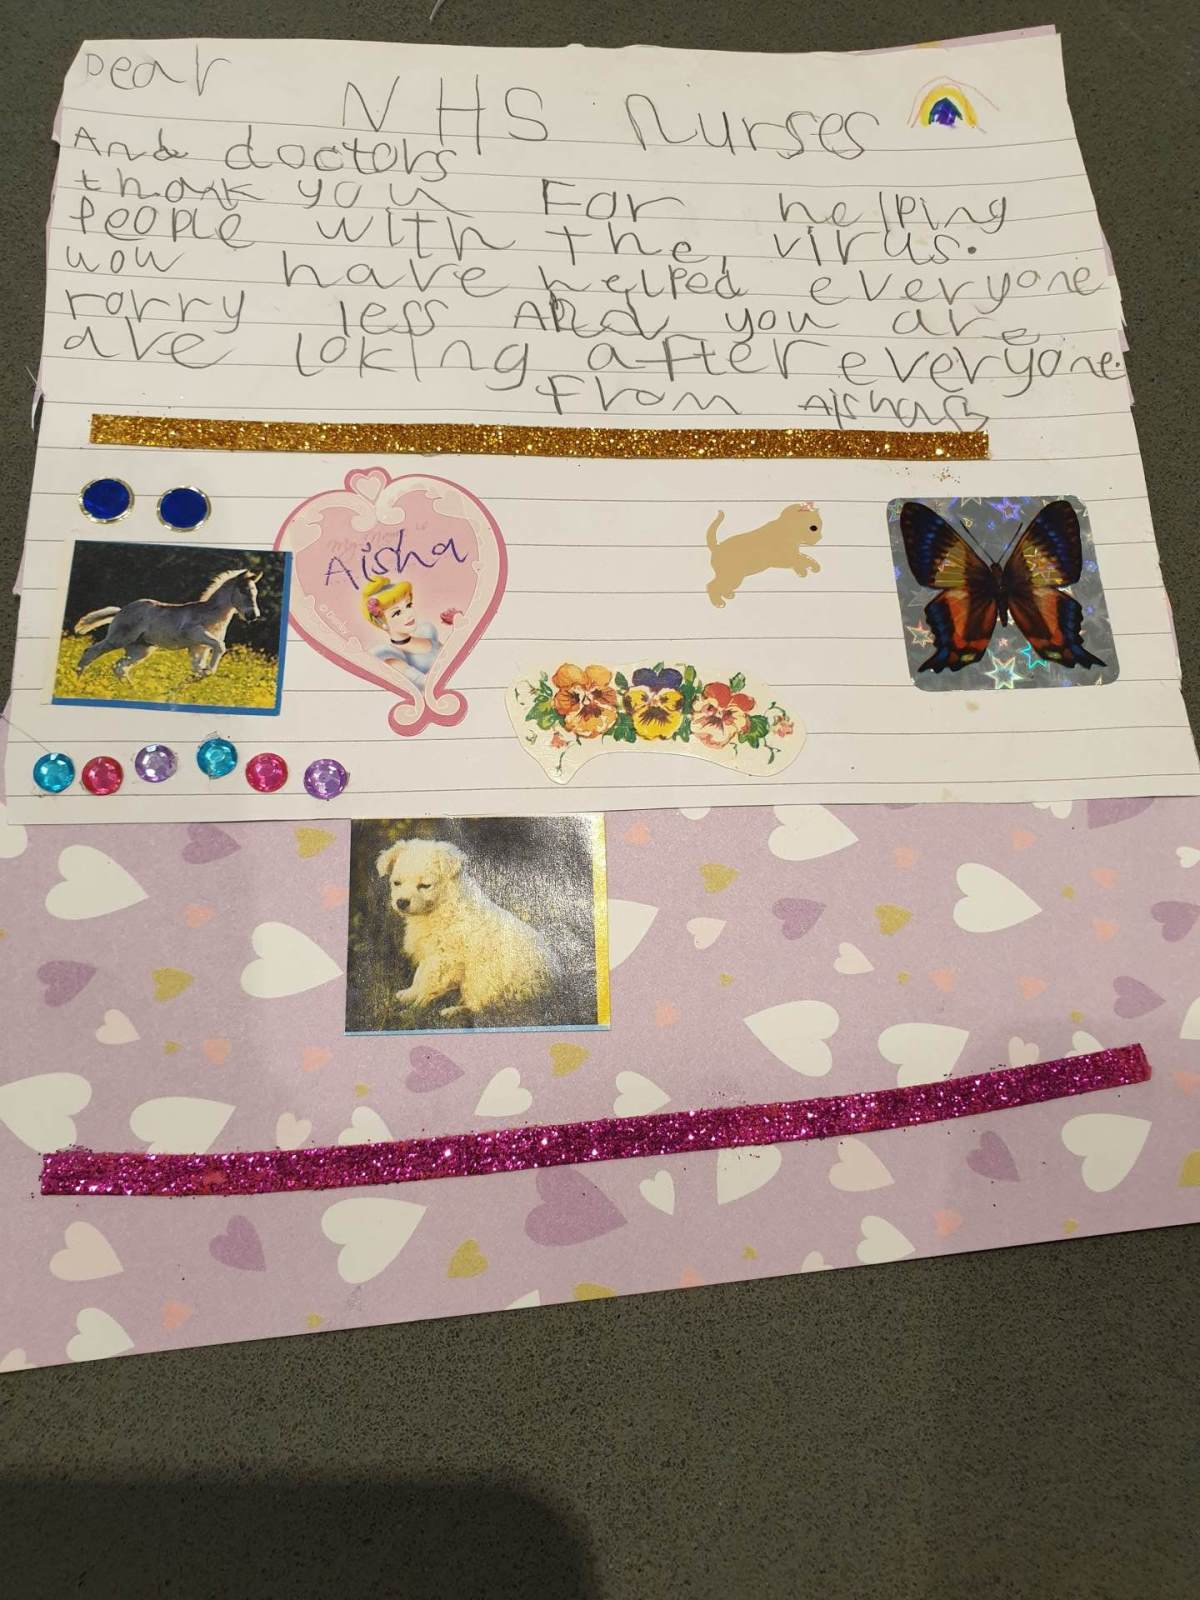 Dear
NHS Nurses
And doctors
thank you For helping
People with the virus.
uou have helped everyone
rorry less And you are
are loking after everyone.
From Aisha B
My Name is
Aisha
© Disney